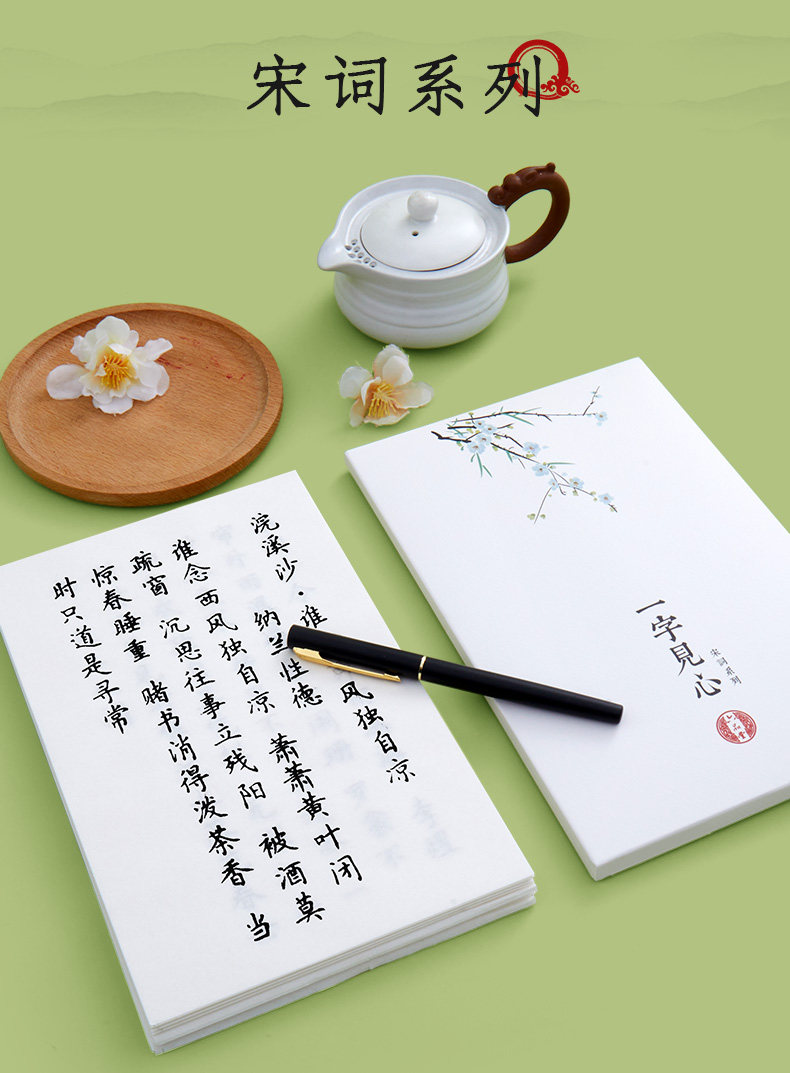 宋词系列
浣溪沙·谁 风独自凉
纳兰性德
谁念西风独自凉 萧萧黄叶闭
疏窗 沉思往事立残阳 被酒莫
惊春睡重 赌书消得泼茶香 当
时只道是寻常
一字見心
宋词系列